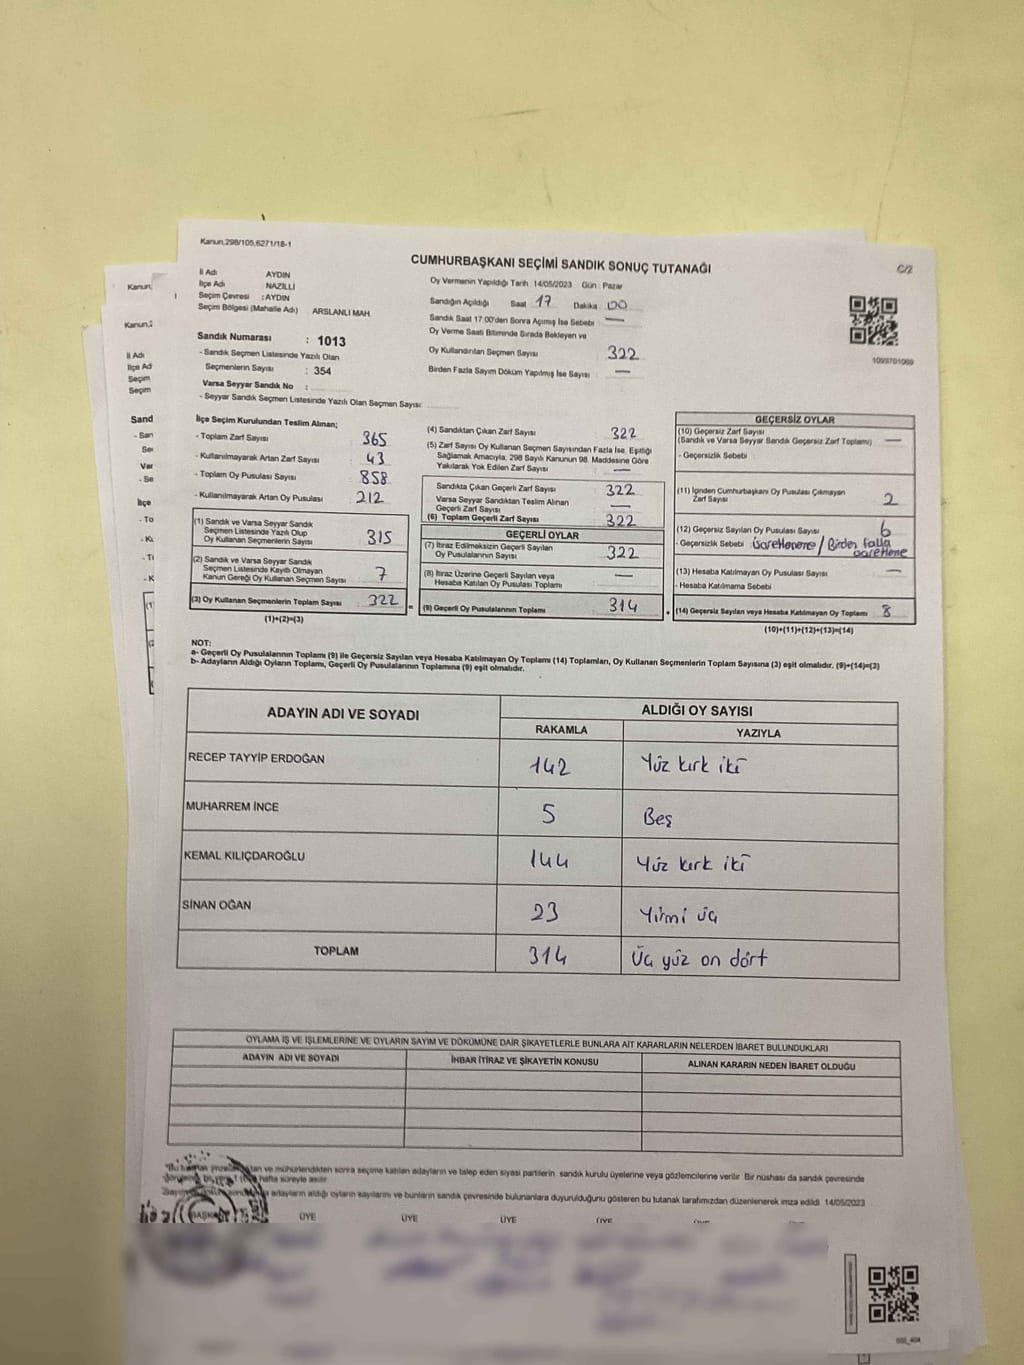 Kanun,298/105,6271/18-1
CUMHURBAŞKANI SEÇİMİ SANDIK SONUÇ TUTANAĞI
C/2
İl Adı AYDIN
İlçe Adı NAZİLLİ
Seçim Çevresi : AYDIN
Seçim Bölgesi (Mahalle Adı) ARSLANLI MAH.
Sandık Numarası : 1013
- Sandık Seçmen Listesinde Yazılı Olan
Seçmenlerin Sayısı : 354
Varsa Seyyar Sandık No :
- Seyyar Sandık Seçmen Listesinde Yazılı Olan Seçmen Sayısı:
Oy Vermenin Yapıldığı Tarih : 14/05/2023 Gün : Pazar
Sandığın Açıldığı Saat 17 Dakika 00
Sandık Saat 17.00'den Sonra Açımış İse Sebebi : —
Oy Verme Saati Bitiminde Sırada Bekleyen ve
Oy Kullandırılan Seçmen Sayısı 322
Birden Fazla Sayım Döküm Yapılmış İse Sayısı : —
1093701069
İlçe Seçim Kurulundan Teslim Alınan;
- Toplam Zarf Sayısı 365
- Kullanılmayarak Artan Zarf Sayısı 43
- Toplam Oy Pusulası Sayısı 858
- Kullanılmayarak Artan Oy Pusulası 212
(1) Sandık ve Varsa Seyyar Sandık
Seçmen Listesinde Yazılı Olup
Oy Kullanan Seçmenlerin Sayısı 315
(2) Sandık ve Varsa Seyyar Sandık
Seçmen Listesinde Kayıtlı Olmayan
Kanun Gereği Oy Kullanan Seçmen Sayısı 7
(3) Oy Kullanan Seçmenlerin Toplam Sayısı 322 =
(1)+(2)=(3)
(4) Sandıktan Çıkan Zarf Sayısı 322
(5) Zarf Sayısı Oy Kullanan Seçmen Sayısından Fazla İse, Eşitliği
Sağlamak Amacıyla, 298 Sayılı Kanunun 98. Maddesine Göre
Yakılarak Yok Edilen Zarf Sayısı : —
Sandıkta Çıkan Geçerli Zarf Sayısı 322
Varsa Seyyar Sandıktan Teslim Alınan
Geçerli Zarf Sayısı : —
(6) Toplam Geçerli Zarf Sayısı 322
GEÇERLİ OYLAR
(7) İtiraz Edilmeksizin Geçerli Sayılan
Oy Pusulalarının Sayısı 322
(8) İtiraz Üzerine Geçerli Sayılan veya
Hesaba Katılan Oy Pusulası Toplamı —
(9) Geçerli Oy Pusulalarının Toplamı 314
GEÇERSİZ OYLAR
(10) Geçersiz Zarf Sayısı
(Sandık ve Varsa Seyyar Sandık Geçersiz Zarf Toplamı) —
- Geçersizlik Sebebi :
(11) İçinden Cumhurbaşkanı Oy Pusulası Çıkmayan
Zarf Sayısı 2
(12) Geçersiz Sayılan Oy Pusulası Sayısı 6
- Geçersizlik Sebebi İşaretleneme / Birden fazla
işaretleme
(13) Hesaba Katılmayan Oy Pusulası Sayısı —
- Hesaba Katılmama Sebebi :
(14) Geçersiz Sayılan veya Hesaba Katılmayan Oy Toplamı 8
(10)+(11)+(12)+(13)=(14)
NOT:
a- Geçerli Oy Pusulalarının Toplamı (9) ile Geçersiz Sayılan veya Hesaba Katılmayan Oy Toplamı (14) Toplamları, Oy Kullanan Seçmenlerin Toplam Sayısına (3) eşit olmalıdır. (9)+(14)=(3)
b- Adayların Aldığı Oyların Toplamı, Geçerli Oy Pusulalarının Toplamına (9) eşit olmalıdır.
ADAYIN ADI VE SOYADI ALDIĞI OY SAYISI
RAKAMLA YAZIYLA
RECEP TAYYİP ERDOĞAN 142 Yüz kırk iki
MUHARREM İNCE 5 Beş
KEMAL KILIÇDAROĞLU 144 Yüz kırk iki
SİNAN OĞAN 23 Yirmi üç
TOPLAM 314 Üç yüz on dört
OYLAMA İŞ VE İŞLEMLERİNE VE OYLARIN SAYIM VE DÖKÜMÜNE DAİR ŞİKAYETLERLE BUNLARA AİT KARARLARIN NELERDEN İBARET BULUNDUKLARI
ADAYIN ADI VE SOYADI İHBAR İTİRAZ VE ŞİKAYETİN KONUSU ALINAN KARARIN NEDEN İBARET OLDUĞU
ve mühürlendikten sonra seçime katılan adayların ve talep eden siyasi partilerin sandık kurulu üyelerine veya gözlemcilerine verilir. Bir nüshası da sandık çevresinde
hafta süreyle asılır.
adayların aldığı oyların sayılarını ve bunların sandık çevresinde bulunanlara duyurulduğunu gösteren bu tutanak tarafımızdan düzenlenerek imza edildi. 14/05/2023
BAŞKAN ÜYE ÜYE ÜYE ÜYE